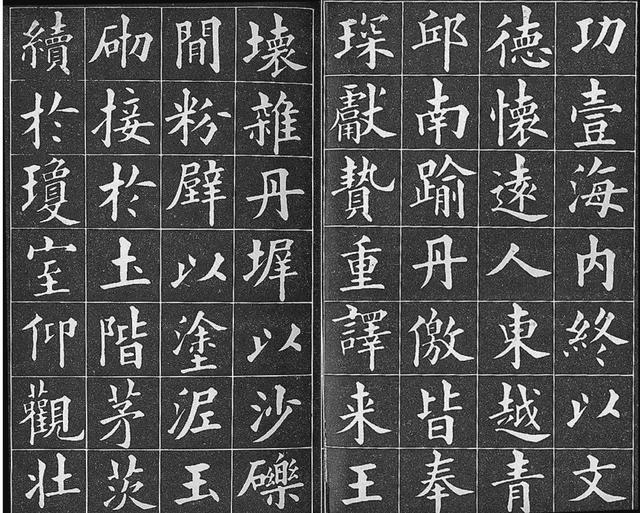 功壹海内終以文
德懷遠人東越青
邱南踰丹儌皆奉
琛獻贄重譯来王
壞雜丹墀以沙礫
間粉壁以塗泥玉
砌接於土階茅茨
續於瓊室仰觀壮